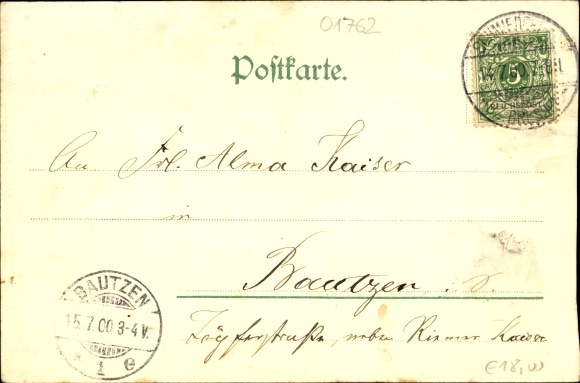 01762
Postkarte.
5
An Frl. Alma Kaiser
in
Bautzen
BAUTZEN
15.7.00 3-4 V.
1 e
Töpferstraße, neben Riemer Kaiser
€18,00